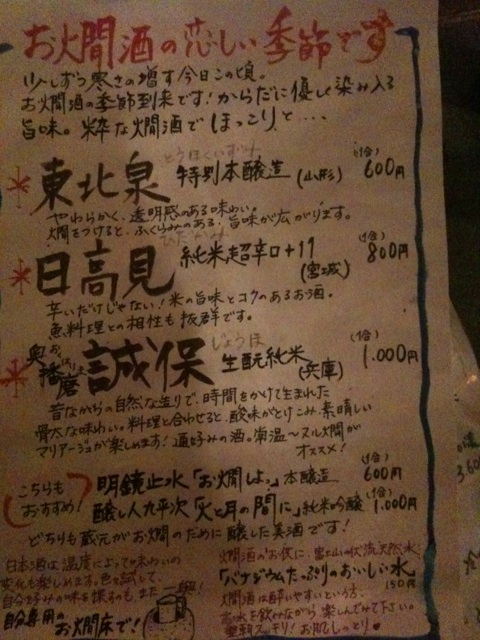 お燗酒の恋しい季節です
少しずつ寒さの増す今日この頃。
お燗酒の季節到来です!からだに優しく染み入る
旨味。粋な燗酒でほっこりと…
とうほくいずみ
東北泉 特別本醸造 (山形) (1合) 600円
やわらかく、透明感のある味わい。
燗をつけると、ふくらみのある、旨味が広がります。
ひたかみ
日高見 純米超辛口+11 (宮城) (1合) 800円
辛いだけじゃない!米の旨味とコクのあるお酒。
魚料理との相性も抜群です。
奥播磨 誠保 じょうほ 生酛純米 (兵庫) (1合) 1.000円
昔ながらの自然な造りで、時間をかけて生まれた
骨太な味わい。料理と合わせると、酸味がとけこみ、素晴しい
マリアージュが楽しめます!通好みの酒。常温〜ヌル燗が
オススメ!
こちらも
おすすめ!
明鏡止水「お燗しよっ」本醸造 (1合) 600円
醸し人九平次「火と月の間に」純米吟醸 (1合) 1.000円
どちらも蔵元がお燗のために醸した美酒です!
日本酒は温度によって味わいの
変化も楽しめます。色々試して
自分好みの味を探るのも、また一興!
自分専用の
お燗床で!
燗酒のお供に、富士山の伏流天然水
「バナジウムたっぷりのおいしい水」
150円
燗酒は酔いやすいという方、
お水を飲みながら楽しんで下さい。
翌朝スッキリ!お肌しっとり